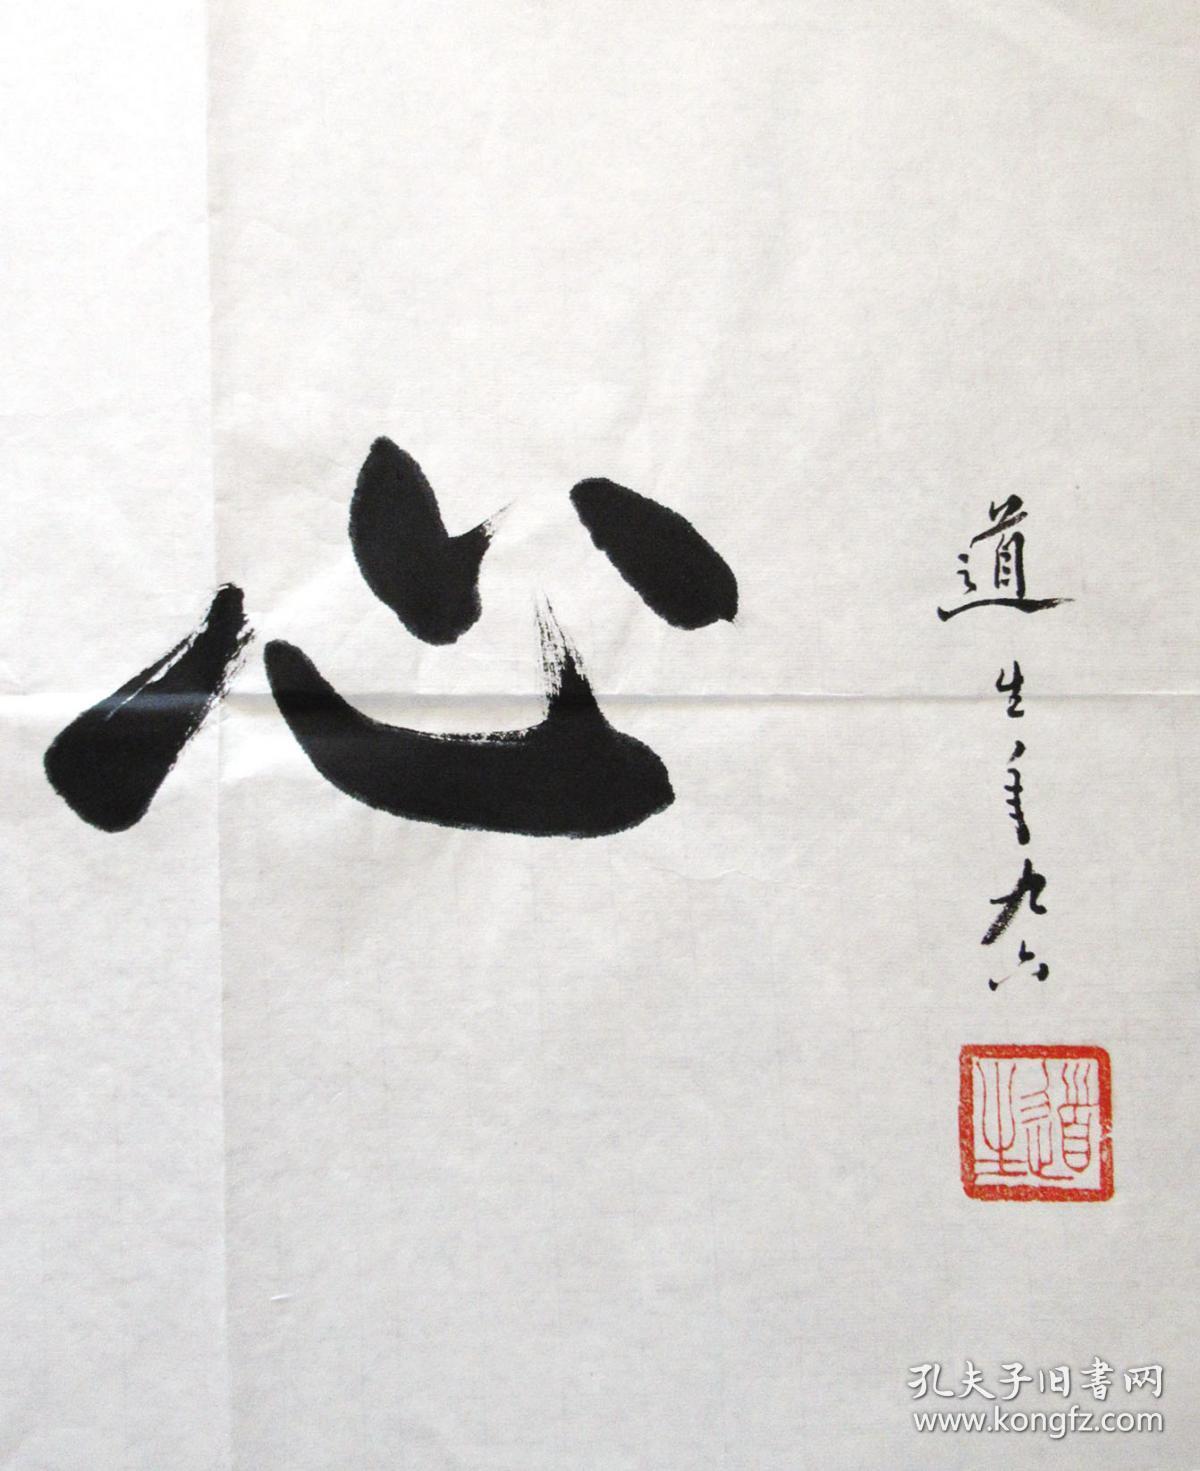 心
道生年九六
道生
孔夫子旧書网
www.kongfz.com